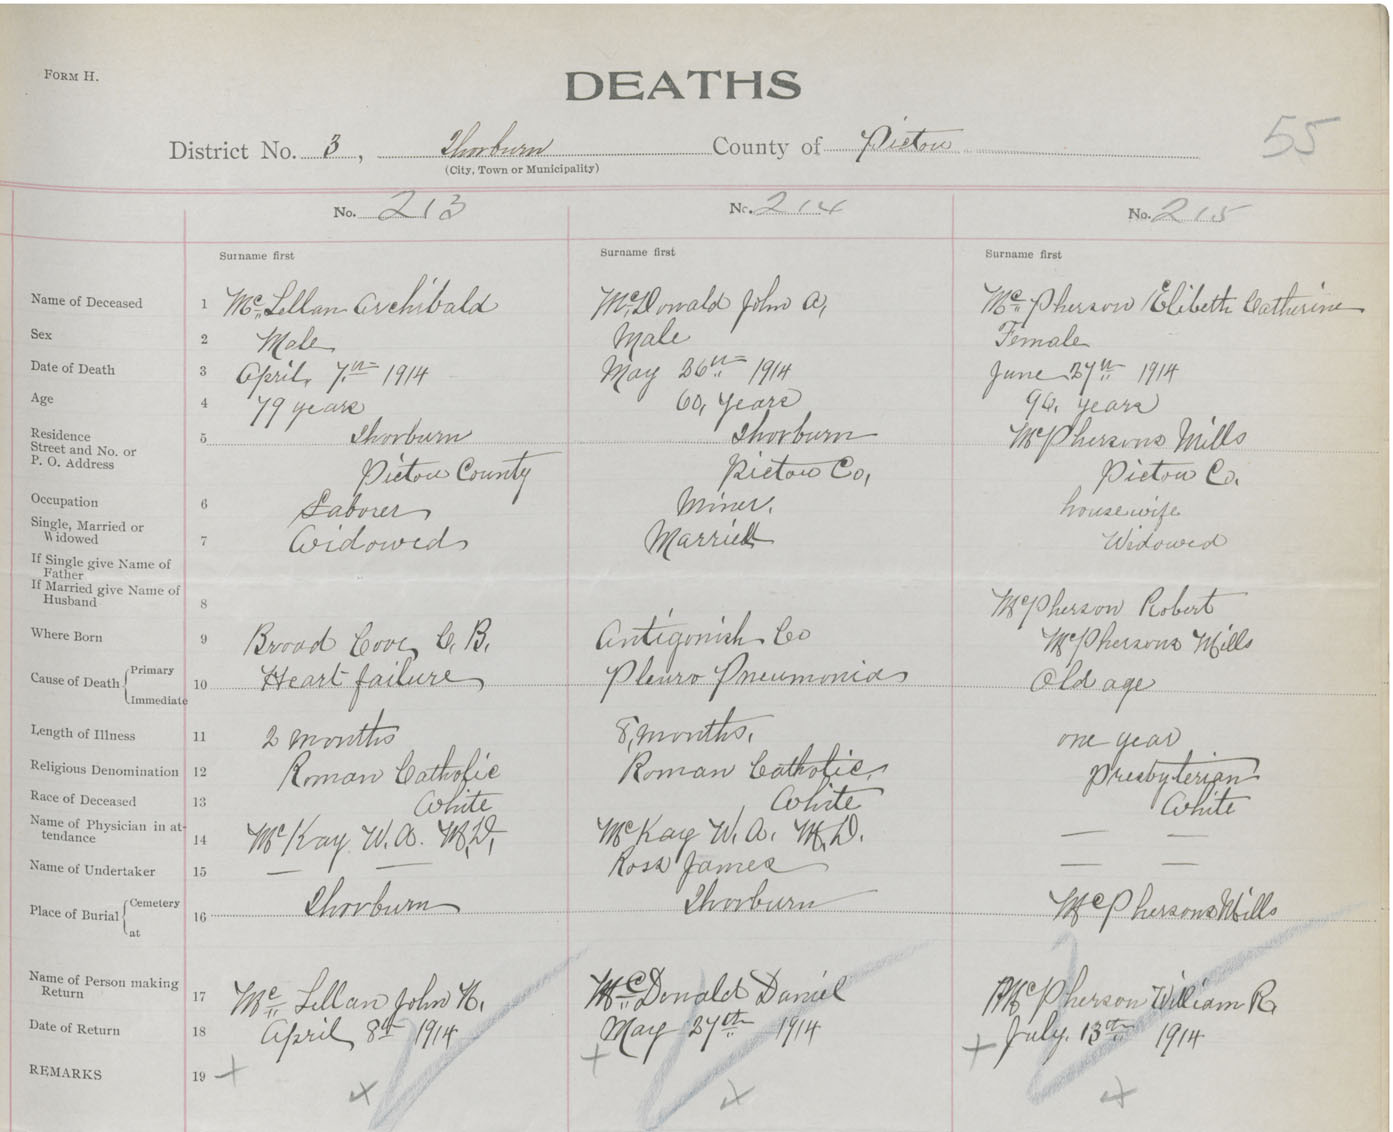 FORM H.
DEATHS
55
District No. 3, Thorburn County of Pictou
(City, Town or Municipality)
No. 213 No. 214 No. 215
Surname first Surname first Surname first
Name of Deceased 1 McLellan Archibald McDonald John A, McPherson Elibeth Catherine
Sex 2 Male Male Female
Date of Death 3 April, 7th 1914 May 26th 1914 June 27th 1914
Age 4 79 years 60, years 90. years
Residence 5 Thorburn Thorburn McPhersons Mills
Street and No. or
P. O. Address Pictou County Pictou Co, Pictou Co.
Occupation 6 Laborer Miner. housewife
Single, Married or
Widowed 7 Widowed Married Widowed
If Single give Name of
Father
If Married give Name of
Husband 8 McPherson Robert
Where Born 9 Broad Cove, C. B. Antigonish Co McPhersons Mills
Cause of Death Primary
10 Heart failure Pleuro Pneumonia Old age
Immediate
Length of Illness 11 2 months 8, months, one year
Religious Denomination 12 Roman Catholic Roman Catholic, Presbyterian
Race of Deceased 13 White White White
Name of Physician in at-
tendance 14 McKay W. A. M,D, McKay W. A. M,D. — —
Name of Undertaker 15 — — Ross James — —
Place of Burial Cemetery
16 Thorburn Thorburn McPhersons Mills
at
Name of Person making
Return 17 McLellan John N. McDonald Daniel McPherson William R.
Date of Return 18 April 8th 1914 May 27th 1914 July. 13th 1914
REMARKS 19